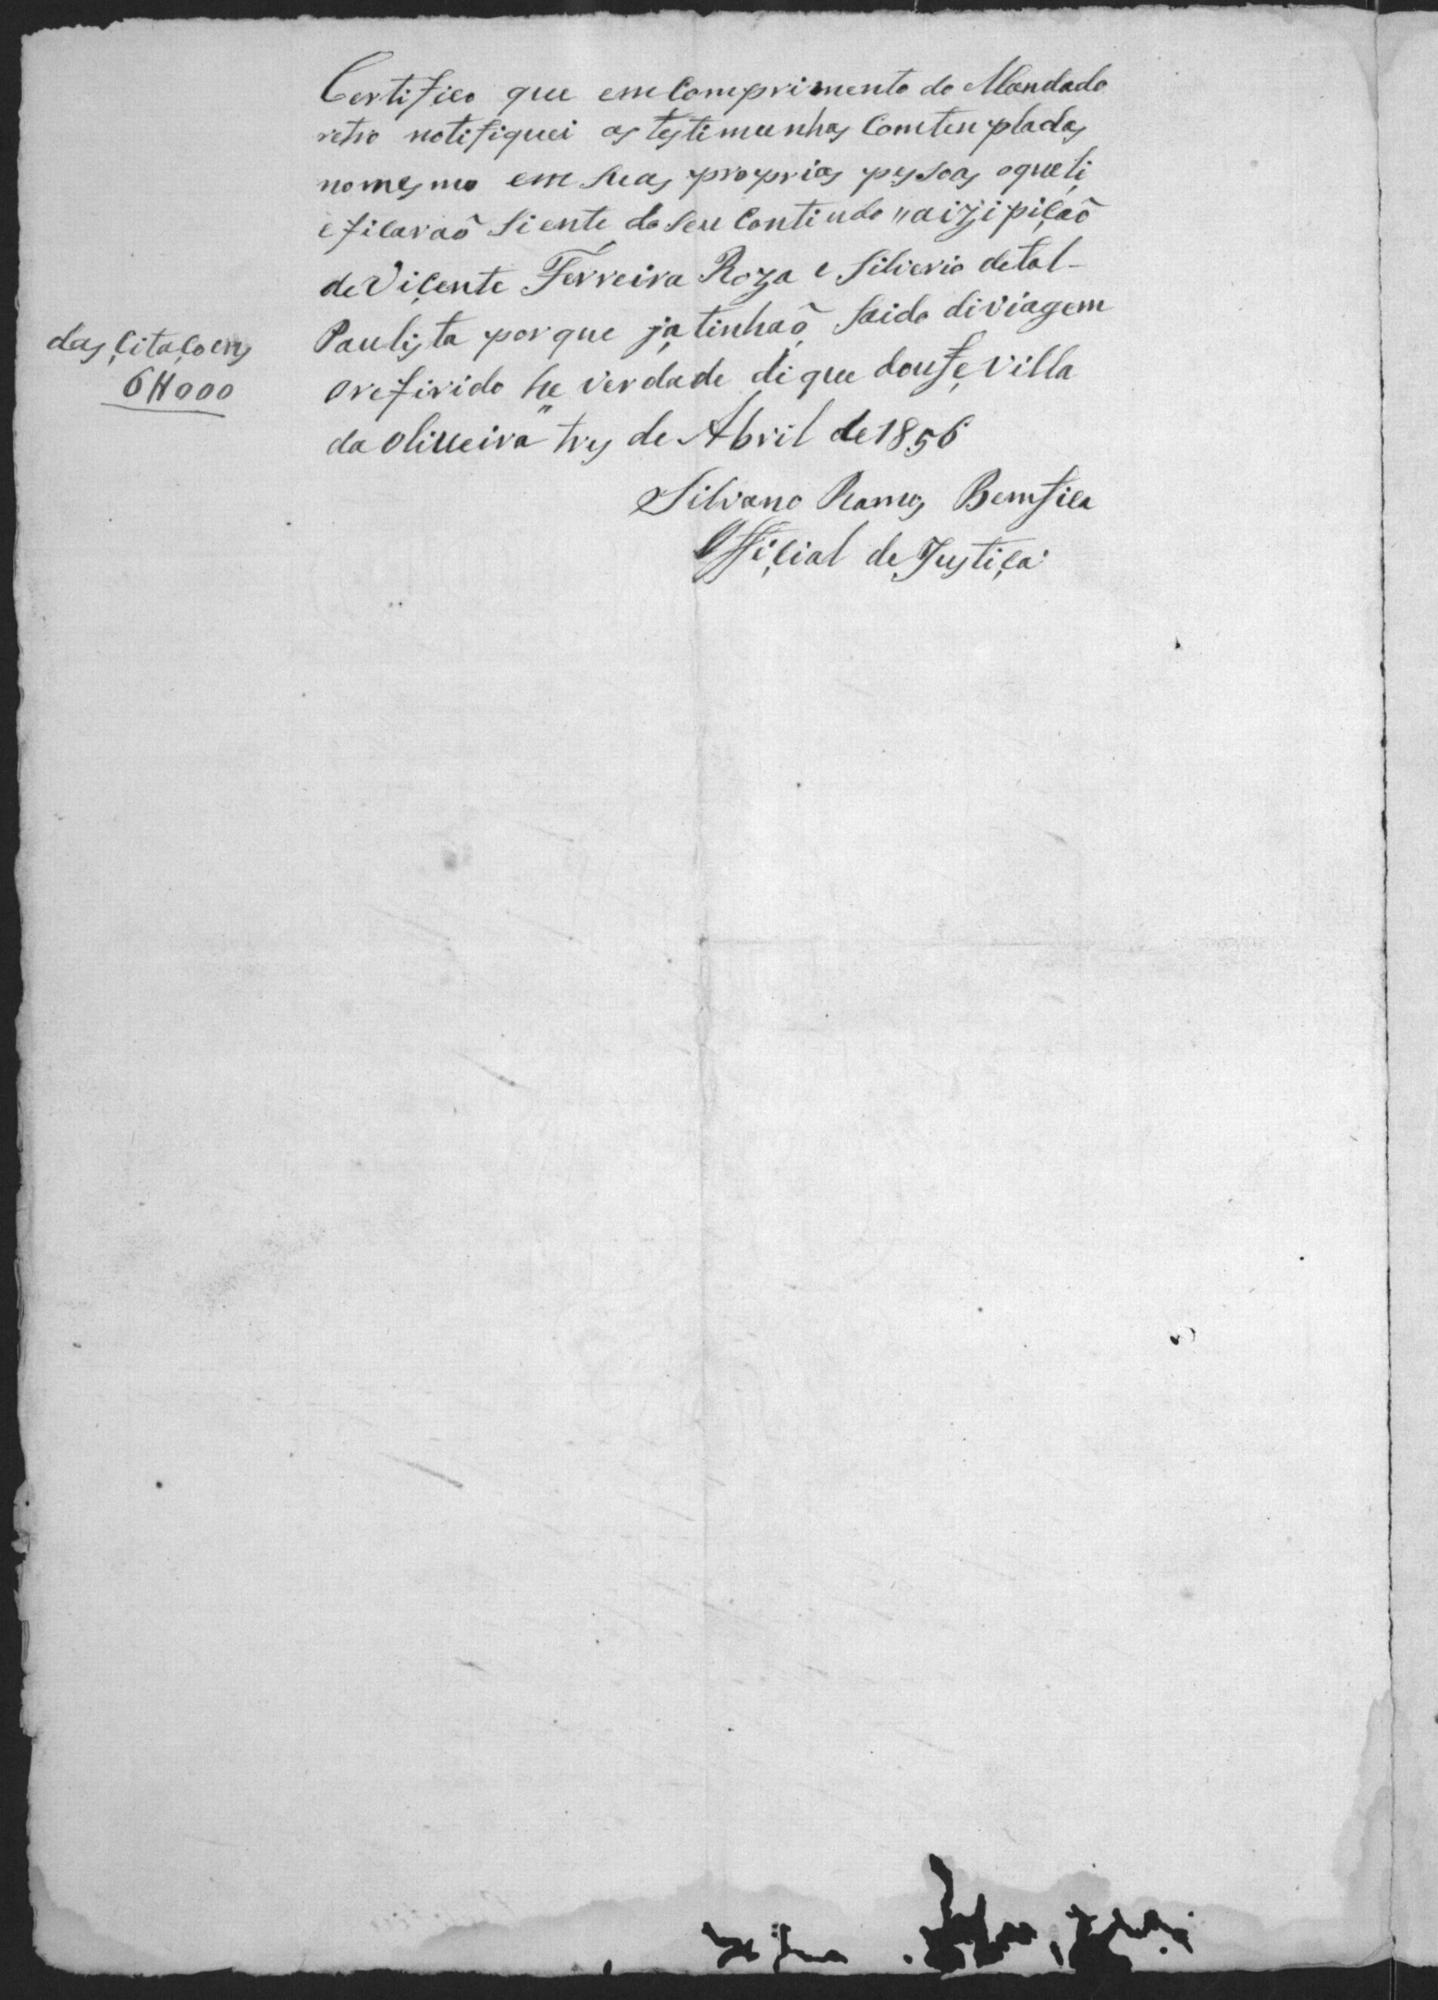 Certifico que em Comprimento do Mandado
retro notifiquei as testimunhas Comtempladas
nomesmo em suas proprias pessoas oqueli
eficaraõ siente do seu Contiudo "aizipiçaõ
de Viçente Ferreira Roza e Silverio detal-
Paulista porque ja tinhaõ saido diviagem
das Çitaçoens
6#000
orefirido he verdade di que doufe Villa
da Oliveira" tres de Abril de 1856
Silvano Ramos Bemfica
Offiçial de Justiça